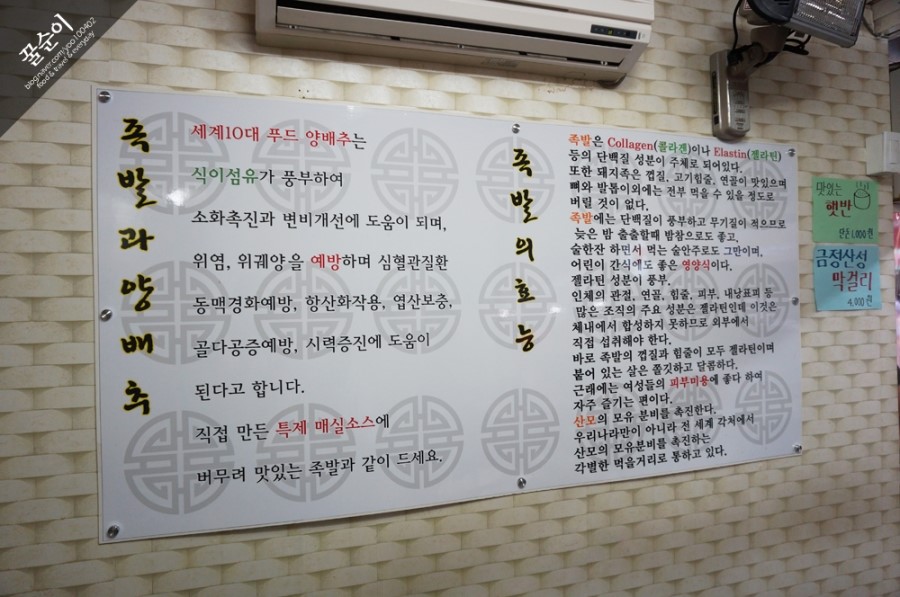 꿀순이
blog.naver.com/yoo100402
food & travel & everyday
족발과양배추
세계10대 푸드 양배추는
식이섬유가 풍부하여
소화촉진과 변비개선에 도움이 되며,
위염, 위궤양을 예방하며 심혈관질환
동맥경화예방, 항산화작용, 엽산보충,
골다공증예방, 시력증진에 도움이
된다고 합니다.
직접 만든 특제 매실소스에
버무려 맛있는 족발과 같이 드세요.
족발의효능
족발은 Collagen(콜라겐)이나 Elastin(젤라틴)
등의 단백질 성분이 주체로 되어있다.
또한 돼지족은 껍질, 고기힘줄, 연골이 맛있으며
뼈와 발톱이외에는 전부 먹을 수 있을 정도로
버릴 것이 없다.
족발에는 단백질이 풍부하고 무기질이 적으므로
늦은 밤 출출할때 밤참으로도 좋고,
술한잔 하면서 먹는 술안주로도 그만이며,
어린이 간식에도 좋은 영양식이다.
젤라틴 성분이 풍부.
인체의 관절, 연골, 힘줄, 피부, 내낭표피 등
많은 조직의 주요 성분은 젤라틴인데 이것은
체내에서 합성하지 못하므로 외부에서
직접 섭취해야 한다.
바로 족발의 껍질과 힘줄이 모두 젤라틴이며
붙어 있는 살은 쫄깃하고 달콤하다.
근래에는 여성들의 피부미용에 좋다 하여
자주 즐기는 편이다.
산모의 모유 분비를 촉진한다.
우리나라만이 아니라 전 세계 각처에서
산모의 모유분비를 촉진하는
각별한 먹을거리로 통하고 있다.
맛있는
햇반
1,000원
금정산성
막걸리
4,000원